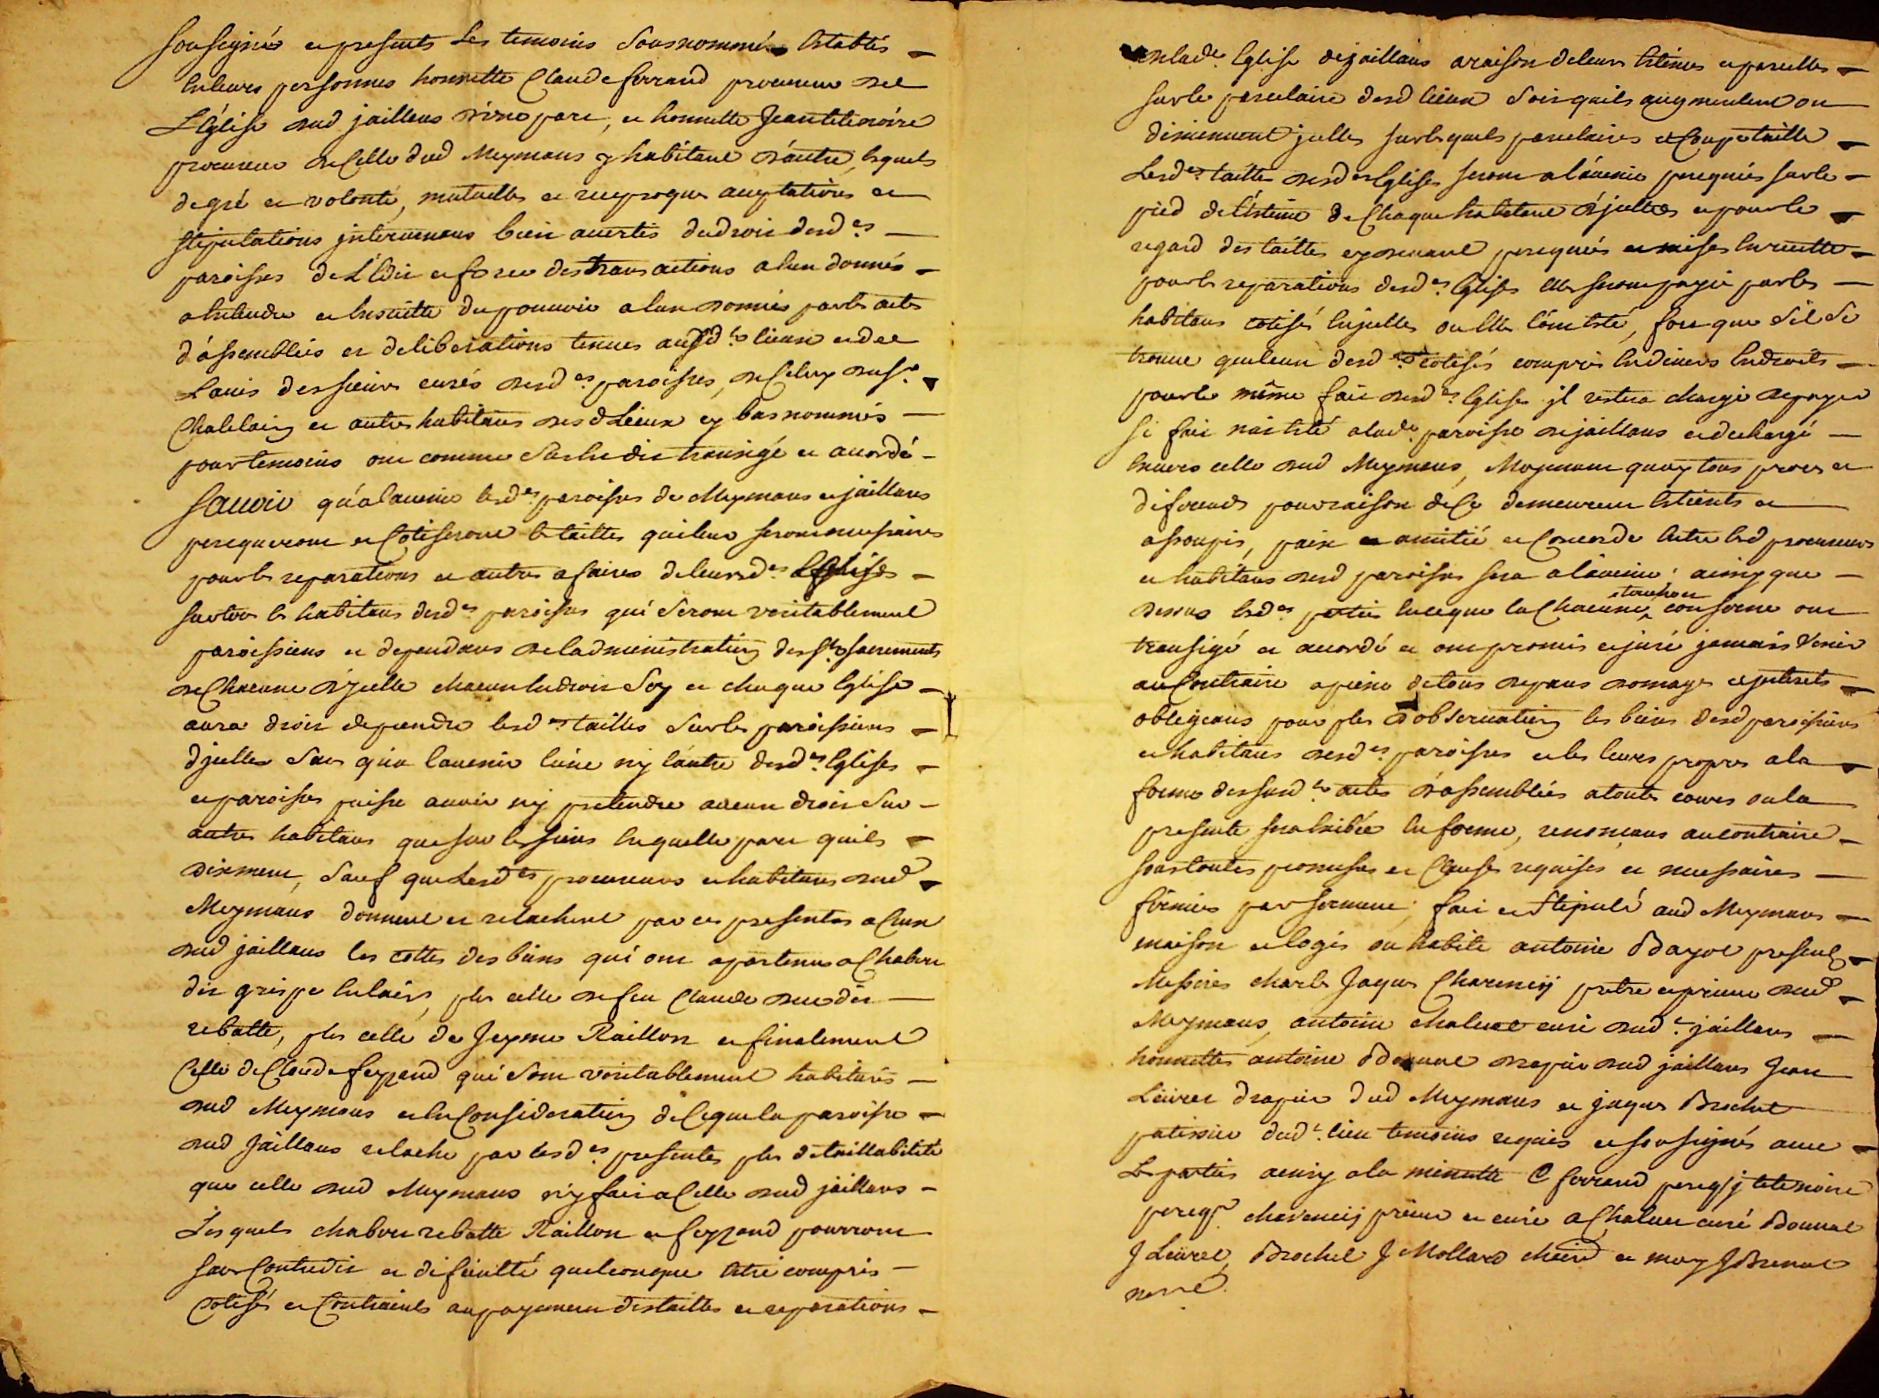 soussignés et presents les temoins sousnommés establis
en leurs personnes honnette Claude ferrand procureur de
L'Église dud jaillans d'une part, et honnette Jean tetenoire
procureur de Celle dud Meymans y habitant d'autre, lesquels
de gré et volonté, mutuelles et reciproques aceptations et
stipulations intervenans bien avertis du droit desd.es
paroisses de L'Edit et force des transactions a eux donnés
a entendre et ensuitte du pouvoir a eux donnés par les actes
d'assemblées et deliberations tenues auxd.ts lieux et de
L'avis des sieurs curés desd.es paroisses, de Celuy du s.r
Chatelain et autres habitans desd Lieux cy bas nommés
pour temoins ont comme sachedit transigé et acordé
Sauoir qu'a l'auenir lesd.es paroisses de Meymans et jaillans
perequeront et Cotiseront les tailles qui leur seront necessaires
pour les reparations et autres afaires de leursd.es Eglises
sur tous les habitans desd.es paroisses qui seront veritablement
paroissiens et dependans de la dministration des s.ts sacrements
de Chacune d'jcelle chacun endroit soy et chaque Eglise
aura droit de prendre lesd.es tailles sur les paroissiens
d'jcelles sans qu'a l'auenir l'une ny l'autre desd.es Eglises
et paroisses puisse auoir ny pretendre aucun droit sur
autres habitans que sur les siens en quelle part quils
disment, sauf que Lesd.es procureurs et habitans dud
Meymans donnent et relachent par ces presentes a Ceux
dud jaillans les cottes des biens qui ont apartenus a Chabert
dit grippe, plus celle de feu Claude dit
rebatte, plus celle de Jeyme Raillon et finalement
Celle de Claude feyzand qui sont veritablement habitans
dud Meymans et en Consideration de Ce que la paroisse
dud Jaillans relache par lesd.es presentes plus de taillabilité
que celle dud Meymans n'y fait a Celle dud jaillans
Lesquels chabert rebatte Raillon et feyzand pourront
sans Contredit et dificulté quelconque estre compris
Cotisés et Contraints au payement des tailles et reparations
en lad.e Eglise de jaillans a raison de leurs estimes et parcelles
sur le parcelaire desd lieux soit quils augmentent ou
diminuent jcelles sur lesquels parcelaires et Coupe taille
Lesd.es tailles desd.es Eglises seront a l'auenir perequées sur le
pied de l'estime de Chaque habitant d'jcelles et pour le
regard des tailles cy deuant perequées et mises en recette
pour les reparations desd.es Eglises elles seront payé par les
habitans cotisés en jcelles ou elles l'ont esté, fors que s'il se
trouue quelcun desd.es cotisés compris en diuers Endroits
pour le même fait desd.es Eglises jl restera chargé de payer
si fait n'a esté a lad.e paroisse de jaillans et dechargé
enuers celle dud Meymans, Moyenant quoy tous proces et
diferends pour raison de Ce demeurent esteints et
assoupis, paix et amitié et Concorde entre lesd procureurs
et habitans desd paroisses sera a l'auenir; ainsy que
dessus lesd.es parties en ce que la Chacune conserne ont
transigé et acordé et ont promis et juré jamais Venir
au Contraire a peine de tous depans domages et jnterets
obligeants pour plus d'obseruation les biens desd paroissiens
et habitans desd.es paroisses et les leurs propres a la
forme dessusd.ts actes d'assemblées a toutes cours ou la
presente sera exibée en forme, renoncans au contraire
sous toutes promesses et Clauses requises et necessaires
fermées par serment; fait et stipulé aud Meymans
maison et logis ou habite antoine Bayoe presents
Messires charles Jaques Charency pretre et prieur dud
Meymans, antoine chaluet curé dud.t jaillans
honnettes antoine Bonnat drapier dud jaillans Jean
Leiuret drapier dud Meymans et jaques Brochet
patissier dud.t lieu temoins requis et soussignés auec
Les parties ainsy a la minutte C ferrand pereq.r j tetenoire
pereq.r charency prieur et curé a Chaluet curé Bonnat
J Leiuret, Brochet J Mollard et moy J Brenat
no.re